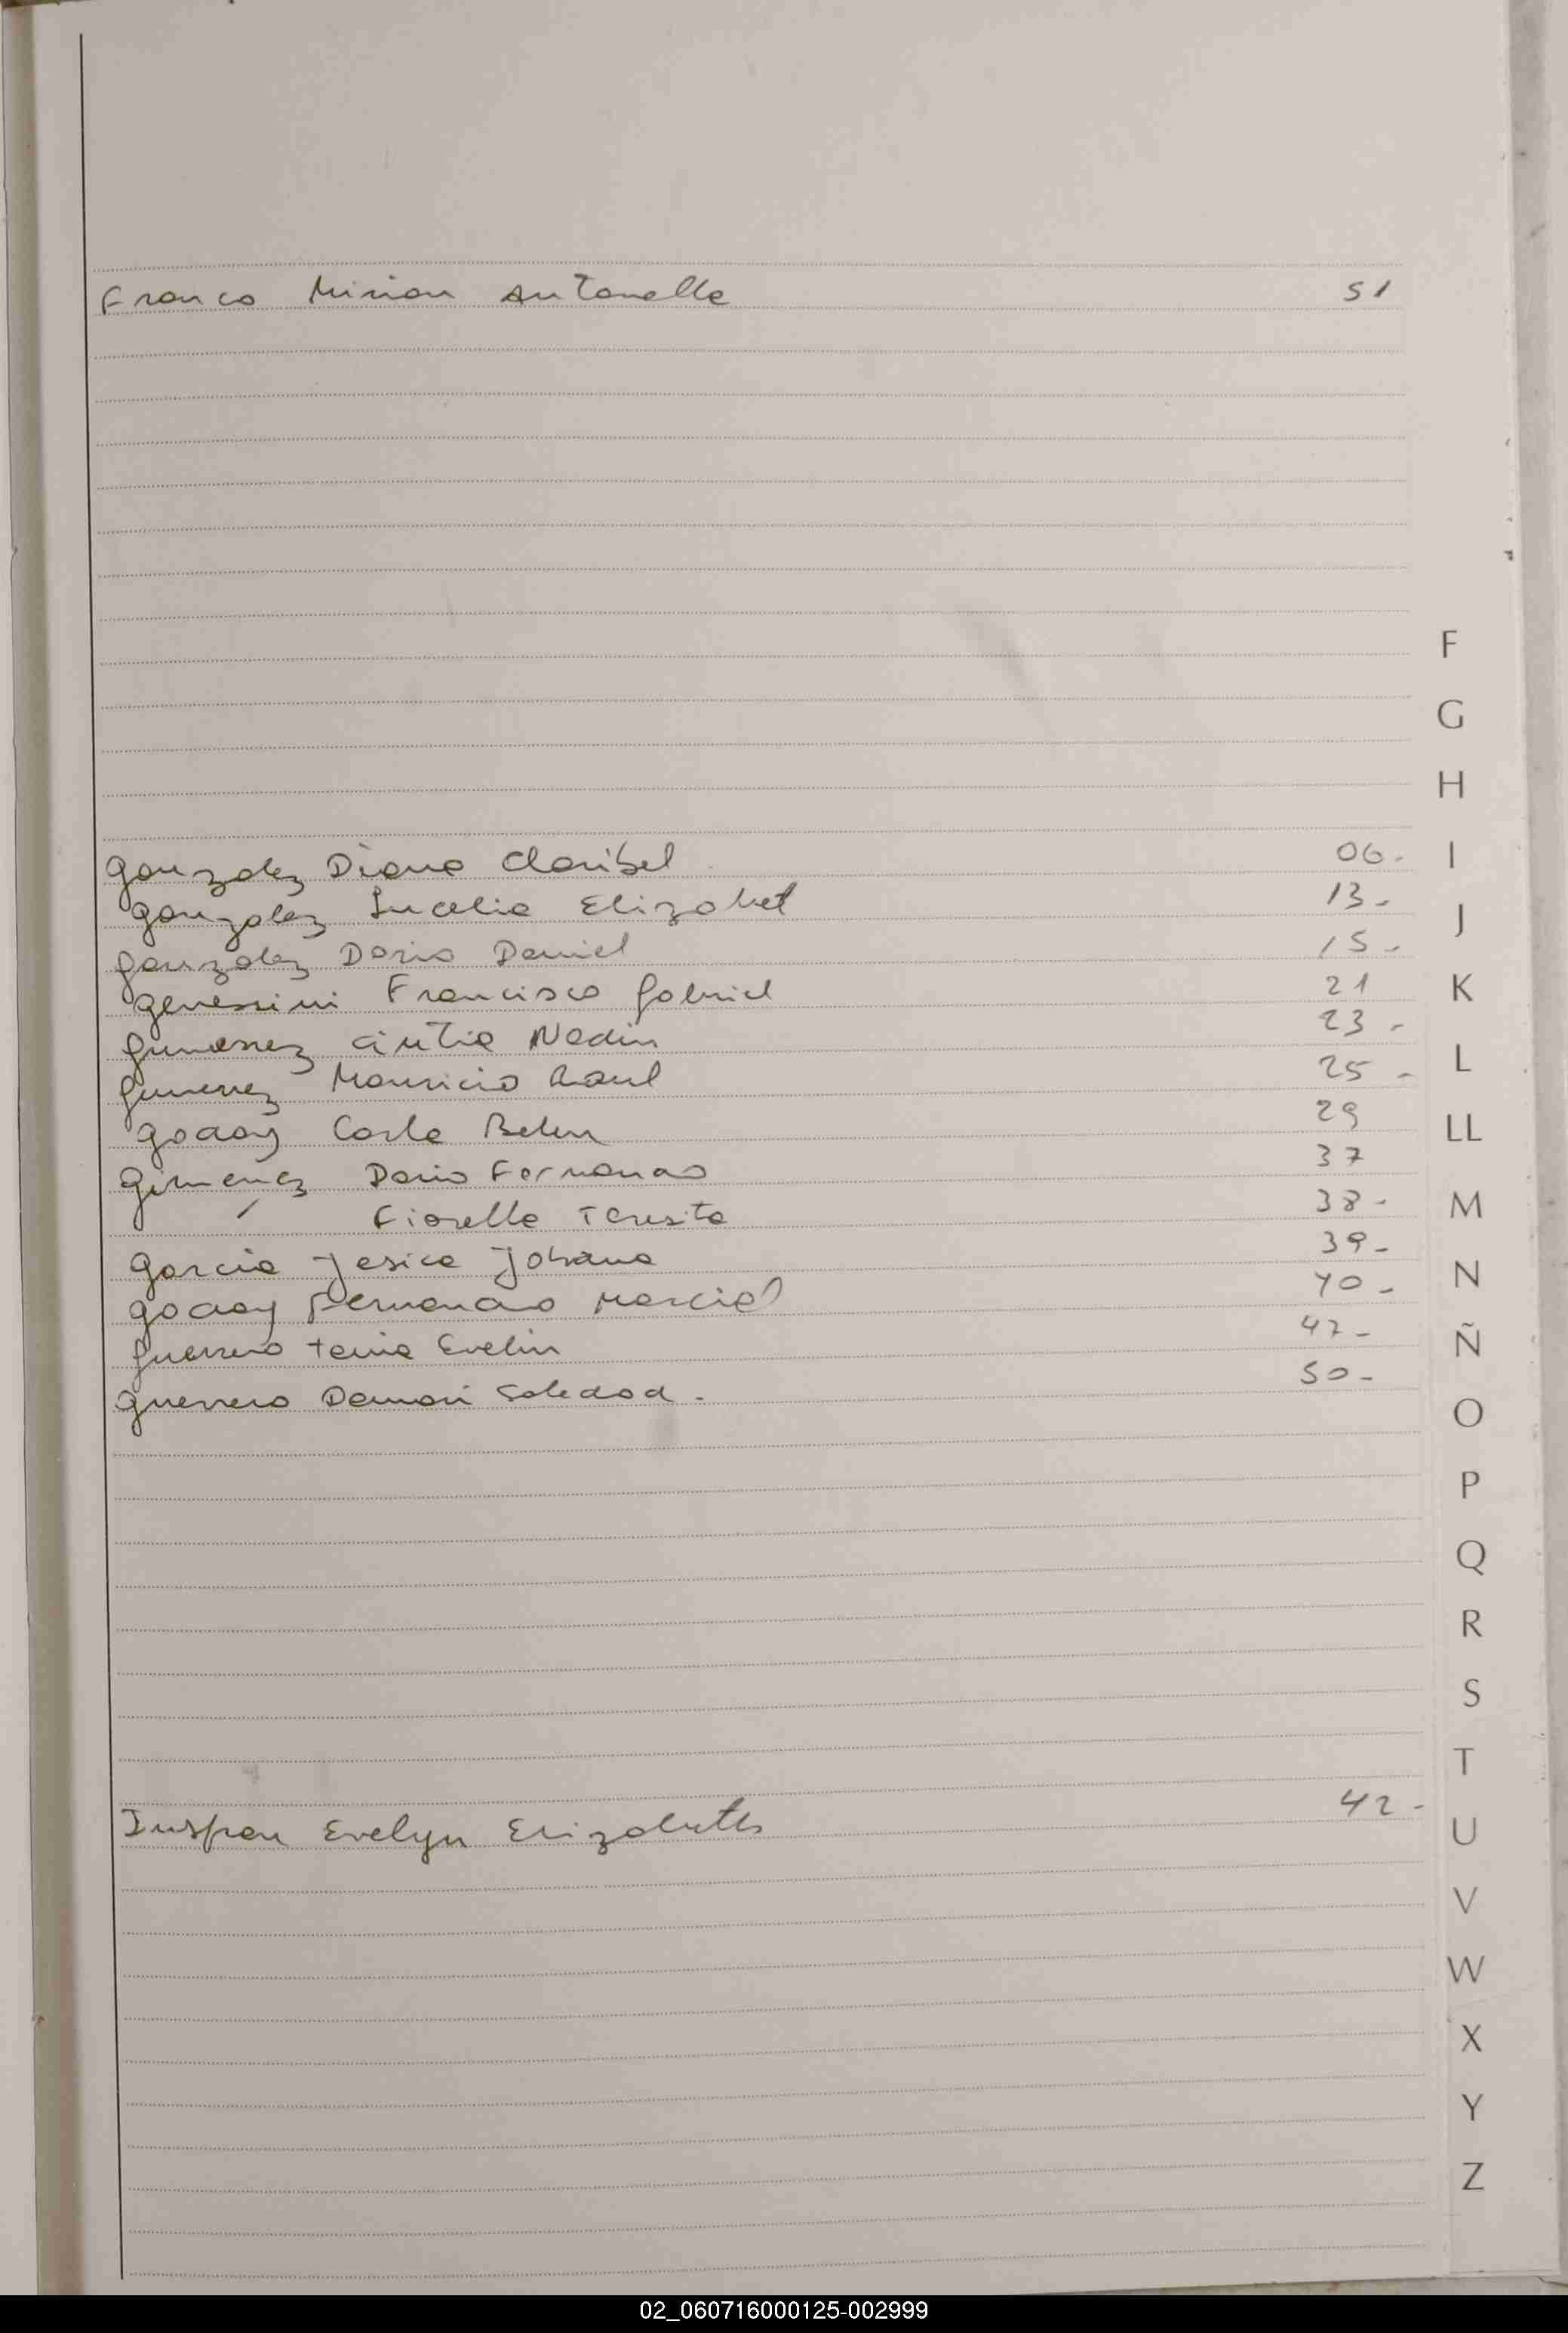 Franco Mirian Antonella 51
F
G
H
Gonzalez Diana Claribel 06.
I
Gonzalez Lucelia Elizabet 13-
J
Gonzalez Dario Daniel 15-
Francisco Gabriel 21
K
Gimenez Cintia Nadin 23-
Gimenez Mauricio Raul 25-
L
Godoy Carla Belen 29
LL
Gimenez Dario Fernando 37
Fiorella Teresita 38-
M
Garcia Jesica Johana 39-
Godoy Fernando Marciel 40-
N
Guerrero Tania Evelin 47-
Ñ
Guerrero Damari Soledad. 50-
O
P
Q
R
S
T
Evelyn Elizabeth 42-
U
V
W
X
Y
Z
02_060716000125-002999